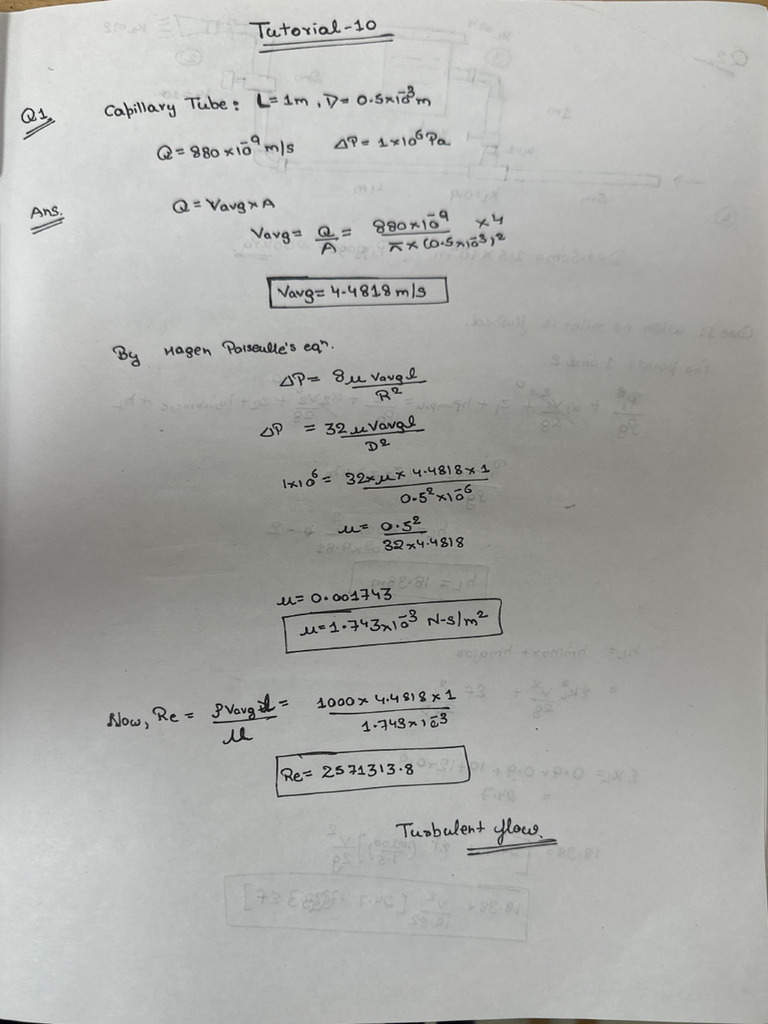 Tutorial-10
Q1. Capillary Tube: L=1m, D=0.5×10⁻³m
Q=880×10⁻⁹ m/s ΔP=1×10⁶ Pa
Ans. Q=Vavg×A
Vavg= Q/A = 880×10⁻⁹ ×4 / π×(0.5×10⁻³)²
Vavg=4.4818 m/s
By Hagen Poiseulle's eqⁿ.
ΔP= 8μ Vavg l / R²
ΔP = 32 μ Vavg l / D²
1×10⁶ = 32×μ× 4.4818×1 / 0.5²×10⁻⁶
μ= 0.5² / 32×4.4818
μ=0.001743
μ=1.743×10⁻³ N-s/m²
Now, Re = ρVavg l / μ = 1000×4.4818×1 / 1.743×10⁻³
Re= 2571313.8
Turbulent flow.